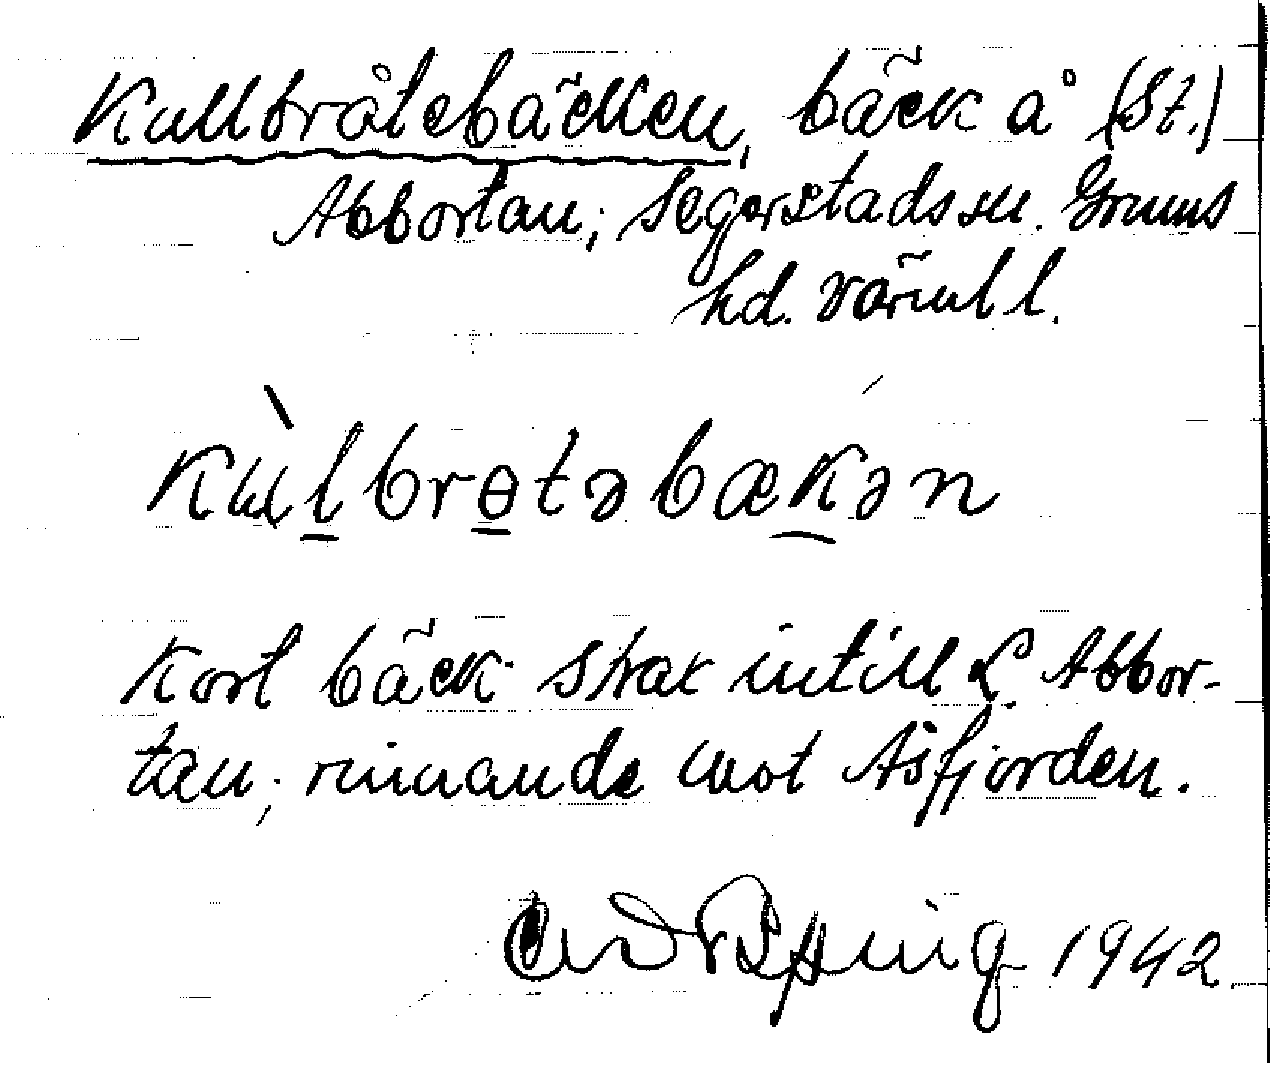 Kullbråtebäcken, bäck å (St.)
Abbortan; Segerstads sn. Grums
hd. Värml l.
Kùlbrɵtəbækən
Kort bäck strax intill L. Abbor-
tan, rinnande mot Åsfjorden.
1942